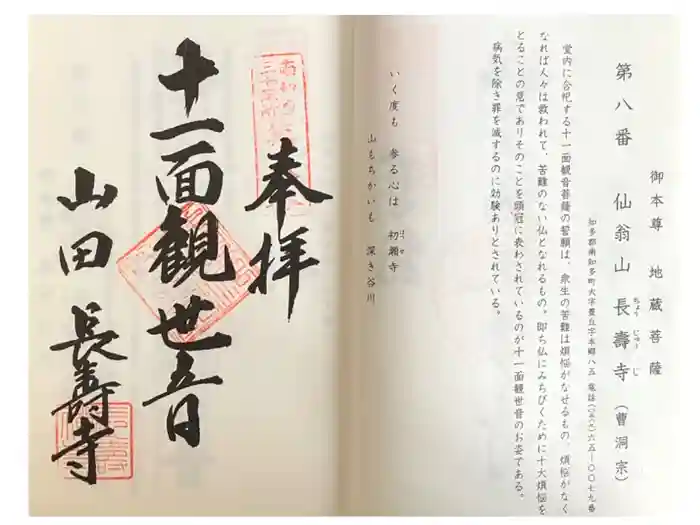 御本尊 地蔵菩薩
第八番 仙翁山長壽寺(曹洞宗)
ちょう じゅー じ
知多郡南知多町大字豊丘字本郷八五 電話(〇五六九)六五―〇〇七九番
堂内に合祀する十一面観音菩薩の誓願は、衆生の苦難は煩悩がなせるもの、煩悩がなく
なれば人々は救われて、苦難のない仏となれるもの。即ち仏にみちびくために十大煩悩を
とることの意でありそのことを頭冠に表わされているのが十一面観世音のお姿である。
病気を除き罪を滅するのに効験ありとされている。
いく度も 参る心は 初瀬寺
はつせ
山もちかいも 深き谷川
奉拝
十一面観世音
山田 長壽寺